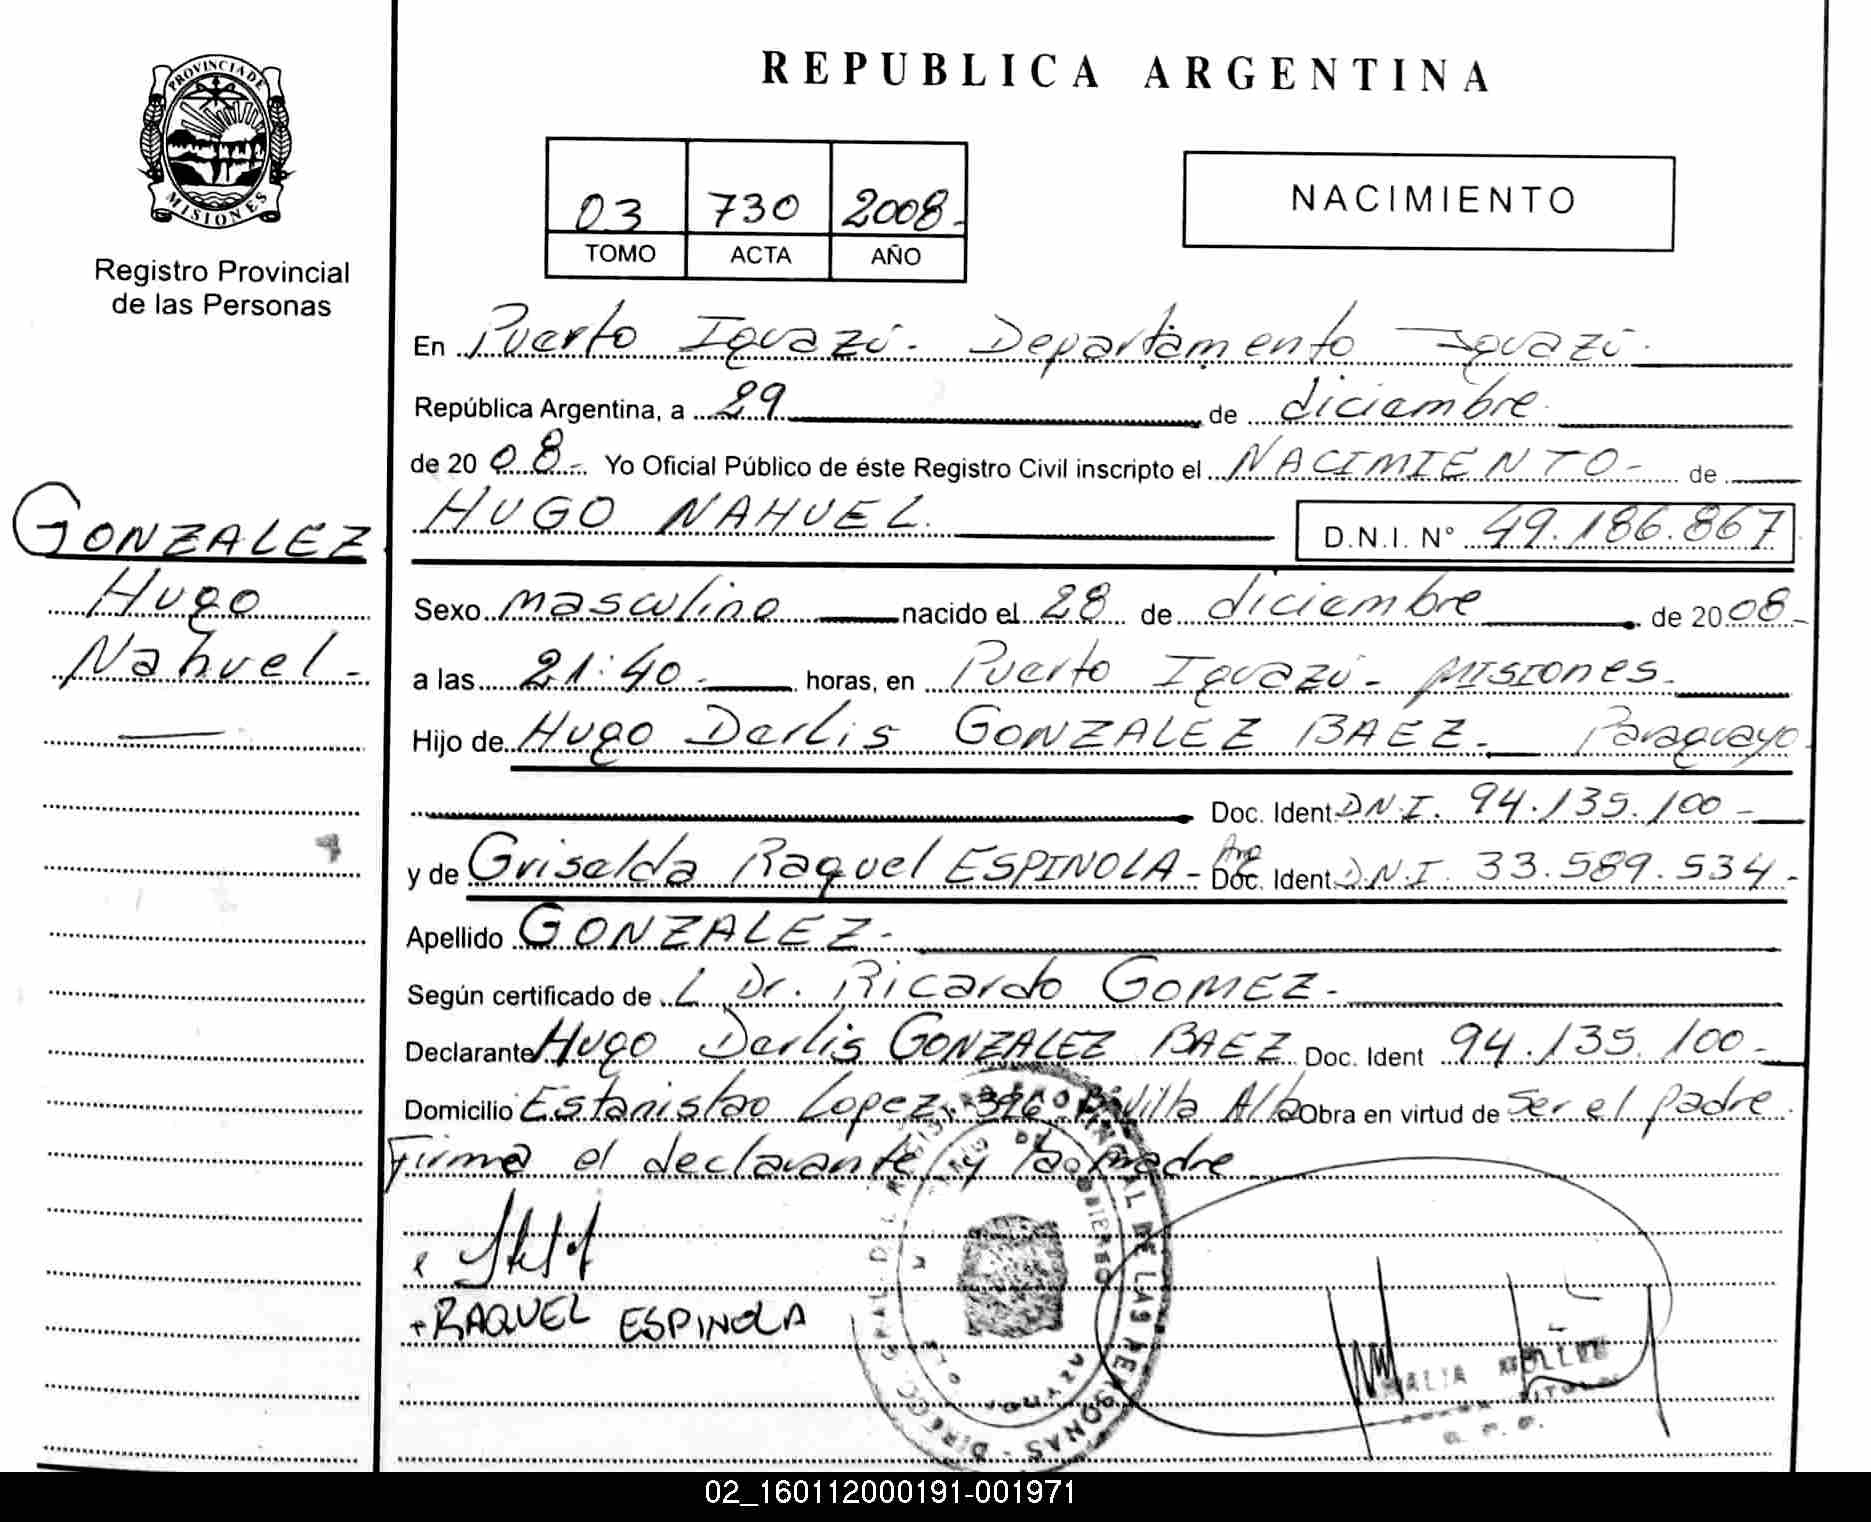 REPUBLICA ARGENTINA
PROVINCIA DE
MISIONES
Registro Provincial
de las Personas
03 730 2008-
TOMO ACTA AÑO
NACIMIENTO
En Puerto Iguazú. Departamento Iguazú.
República Argentina, a 29 de diciembre.
de 2008.- Yo Oficial Público de éste Registro Civil inscripto el NACIMIENTO- de
HUGO NAHUEL. D.N.I. N° 49.186.867
GONZALEZ
Hugo
Nahuel-
Sexo masculino nacido el 28 de diciembre de 2008-
a las 21:40.- horas, en Puerto Iguazú- MISIONES.
Hijo de Hugo Derlis GONZALEZ BAEZ.- Paraguayo.
Doc. Ident. D.N.I. 94.135.100-
y de Griselda Raquel ESPINOLA- Arg Doc. Ident. D.N.I. 33.589.534-
Apellido GONZALEZ-
Según certificado de L Dr. Ricardo GOMEZ-
Declarante Hugo Derlis GONZALEZ BAEZ Doc. Ident 94.135.100-
Domicilio Estanislao Lopez Villa Alta Obra en virtud de ser el padre.
Firma el declarante y la madre
RAQUEL ESPINOLA
DE LAS PERSONAS
02_160112000191-001971